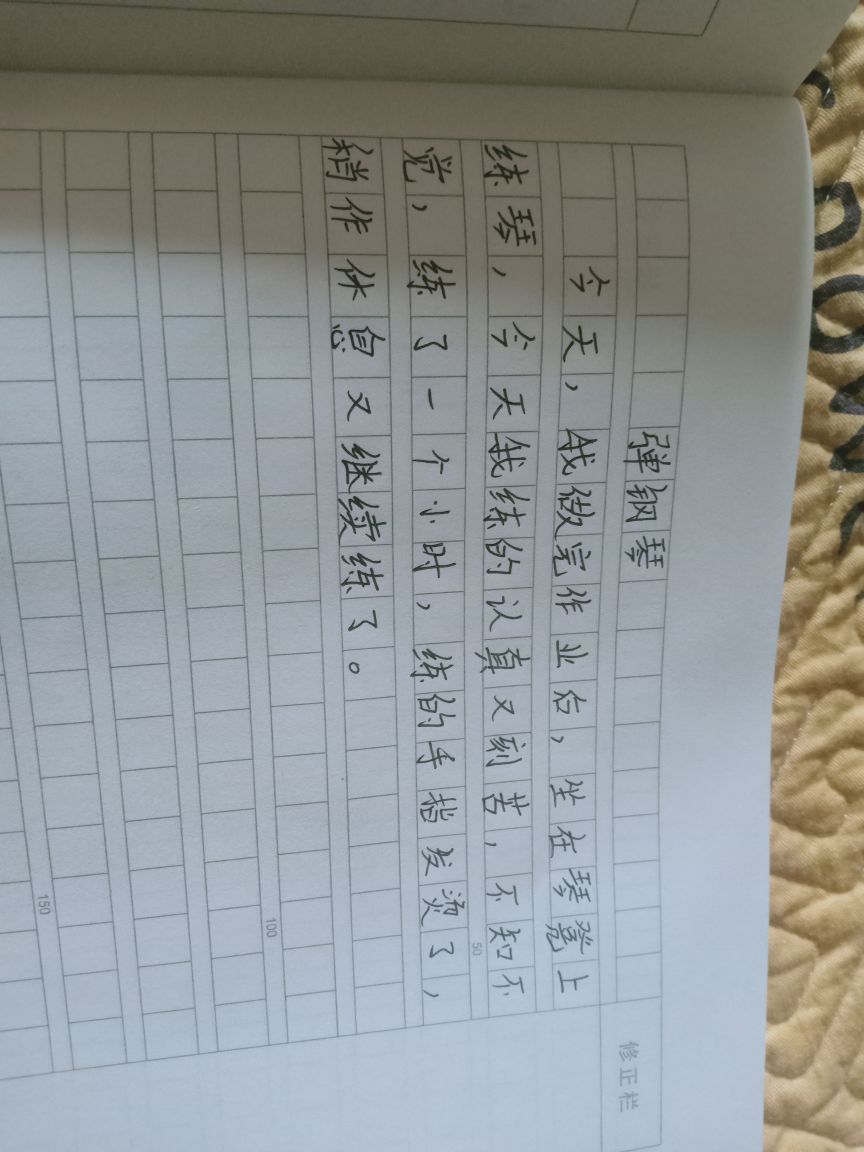 弹钢琴
今天，我做完作业后，坐在琴凳上
练琴，今天我练的认真又刻苦，不知不
50
觉，练了一个小时，练的手指发烫了，
稍作休息又继续练了。
100
150
修正栏